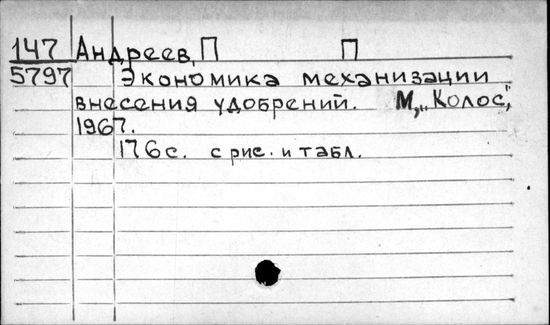 147 Андреев, П П
5797 Экономика механизации
внесения удобрений. М, „Колос",
1967.
176с. с рис. и табл.